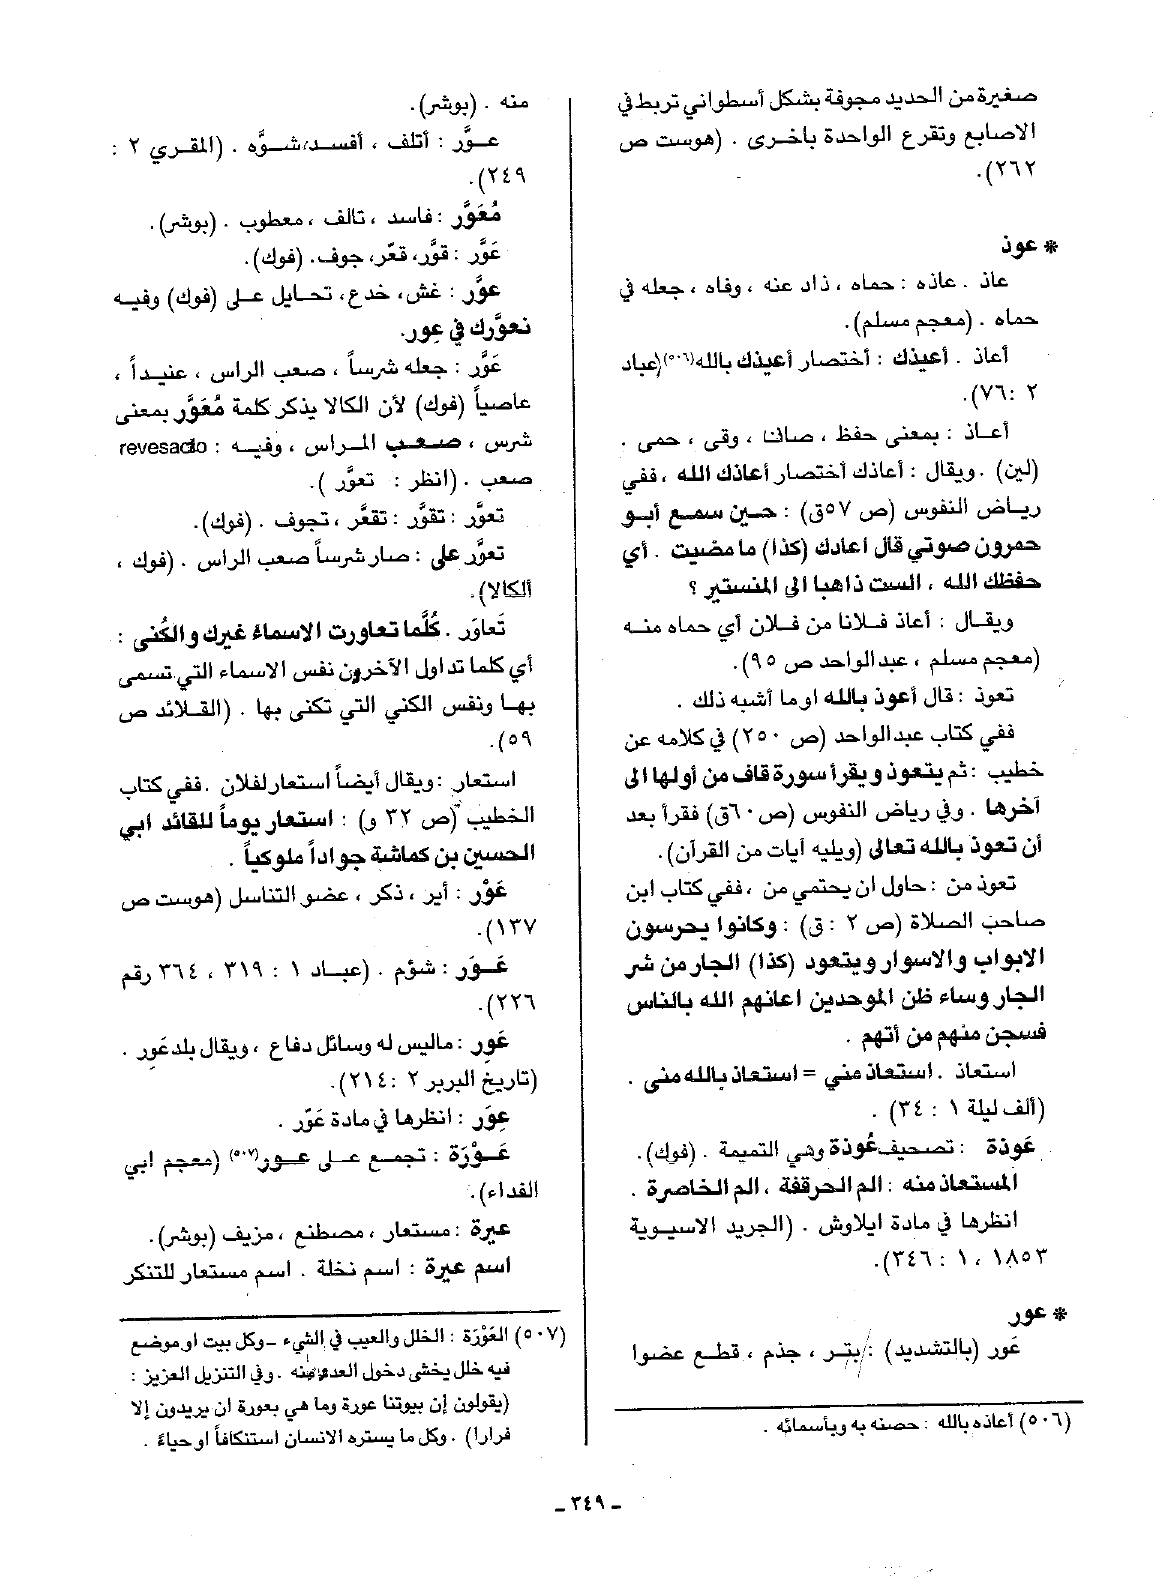 صغيرة من الحديد مجوفة بشكل أسطواني تربط في
الاصابع وتقرع الواحدة باخرى . (هوست ص
٢٦٢).
* عوذ
عاذ . عاذه : حماه ، ذاد عنه ، وفاه ، جعله في
حماه . (معجم مسلم).
أعاذ . أعيذك : أختصار أعيذك بالله(٥٠٦) (عباد
٢ : ٧٦).
أعاذ : بمعنى حفظ ، صان ، وقى ، حمى .
(لين) . ويقال : أعاذك أختصار أعاذك الله ، ففي
رياض النفوس (ص ٥٧ق) : حين سمع أبو
حمرون صوتي قال اعادك (كذا) ما مضيت . أي
حفظك الله ، الست ذاهبا الى المنستير ؟
ويقال : أعاذ فلانا من فلان أي حماه منه
(معجم مسلم ، عبد الواحد ص ٩٥).
تعوذ : قال أعوذ بالله او ما أشبه ذلك .
ففي كتاب عبد الواحد (ص ٢٥٠) في كلامه عن
خطيب : ثم يتعوذ ويقرأ سورة قاف من أولها الى
آخرها . وفي رياض النفوس (ص ٦٠ق) فقرأ بعد
أن تعوذ بالله تعالى (ويليه أيات من القرآن).
تعوذ من : حاول ان يحتمي من ، ففي كتاب ابن
صاحب الصلاة (ص ٢ : ق) : وكانوا يحرسون
الابواب والاسوار ويتعود (كذا) الجار من شر
الجار وساء ظن الموحدين اعانهم الله بالناس
فسجن منهم من أتهم .
استعاذ . استعاذ مني = استعاذ بالله منى .
(ألف ليلة ١ : ٣٤) .
عَوذة : تصحيف عُوذة وهي التميمة . (فوك).
المستعاذ منه : الم الحرقفة ، الم الخاصرة .
انظرها في مادة ايلاوش . (الجريد الاسيوية
١٨٥٣ ، ١ : ٣٤٦).
* عور
عَور (بالتشديد) : بتر ، جذم ، قطع عضوا
(٥٠٦) أعاذه بالله : حصنه به وبأسمائه .
منه . (بوشر).
عوَّر : أتلف ، أفسد، شوَّه . (المقري ٢ :
٢٤٩).
مُعَوَّر : فاسد ، تالف ، معطوب . (بوشر).
عَوَّر : قوَّر، قعّر، جوف. (فوك).
عوَّر : غش، خدع، تحايل على (فوك) وفيه
نعوَّرك في عِور.
عَوَّر : جعله شرساً ، صعب الراس ، عنيداً ،
عاصياً (فوك) لأن الكالا يذكر كلمة مُعَوَّر بمعنى
شرس ، صعب المراس ، وفيه : revesado
صعب . (انظر : تعوَّر ).
تعوَّر : تقوَّر : تقعَّر ، تجوف . (فوك).
تعوَّر على : صار شرساً صعب الراس . (فوك ،
ألكالا).
تَعاوَر . كُلَّما تعاورت الاسماءُ غيرك والكُنى :
أي كلما تداول الآخرون نفس الاسماء التي تسمى
بها ونفس الكني التي تكنى بها . (القلائد ص
٥٩).
استعار : ويقال أيضاً استعار لفلان . ففي كتاب
الخطيب (ص ٣٢ و) : استعار يوماً للقائد ابي
الحسين بن كماشة جواداً ملوكياً .
عَوْر : أير ، ذكر ، عضو التناسل (هوست ص
١٣٧).
عَوَر : شؤم . (عباد ١ : ٣١٩ ، ٣٦٤ رقم
٢٢٦).
عَوِر : ماليس له وسائل دفاع ، ويقال بلد عَوِر .
(تاريخ البربر ٢ : ٢١٤).
عِوَر : انظرها في مادة عَوّر .
عَوْرَة : تجمع على عور(٥٠٧) (معجم ابي
الفداء).
عيرة : مستعار ، مصطنع ، مزيف (بوشر).
اسم عيرة : اسم نخلة . اسم مستعار للتنكر
(٥٠٧) العَوْرَة : الخلل والعيب في الشيء - وكل بيت او موضع
فيه خلل يخشى دخول العدو منه . وفي التنزيل العزيز :
(يقولون إن بيوتنا عورة وما هي بعورة ان يريدون إلا
فرارا) . وكل ما يستره الانسان استنكافاً او حياءً .
- ٣٤٩ -